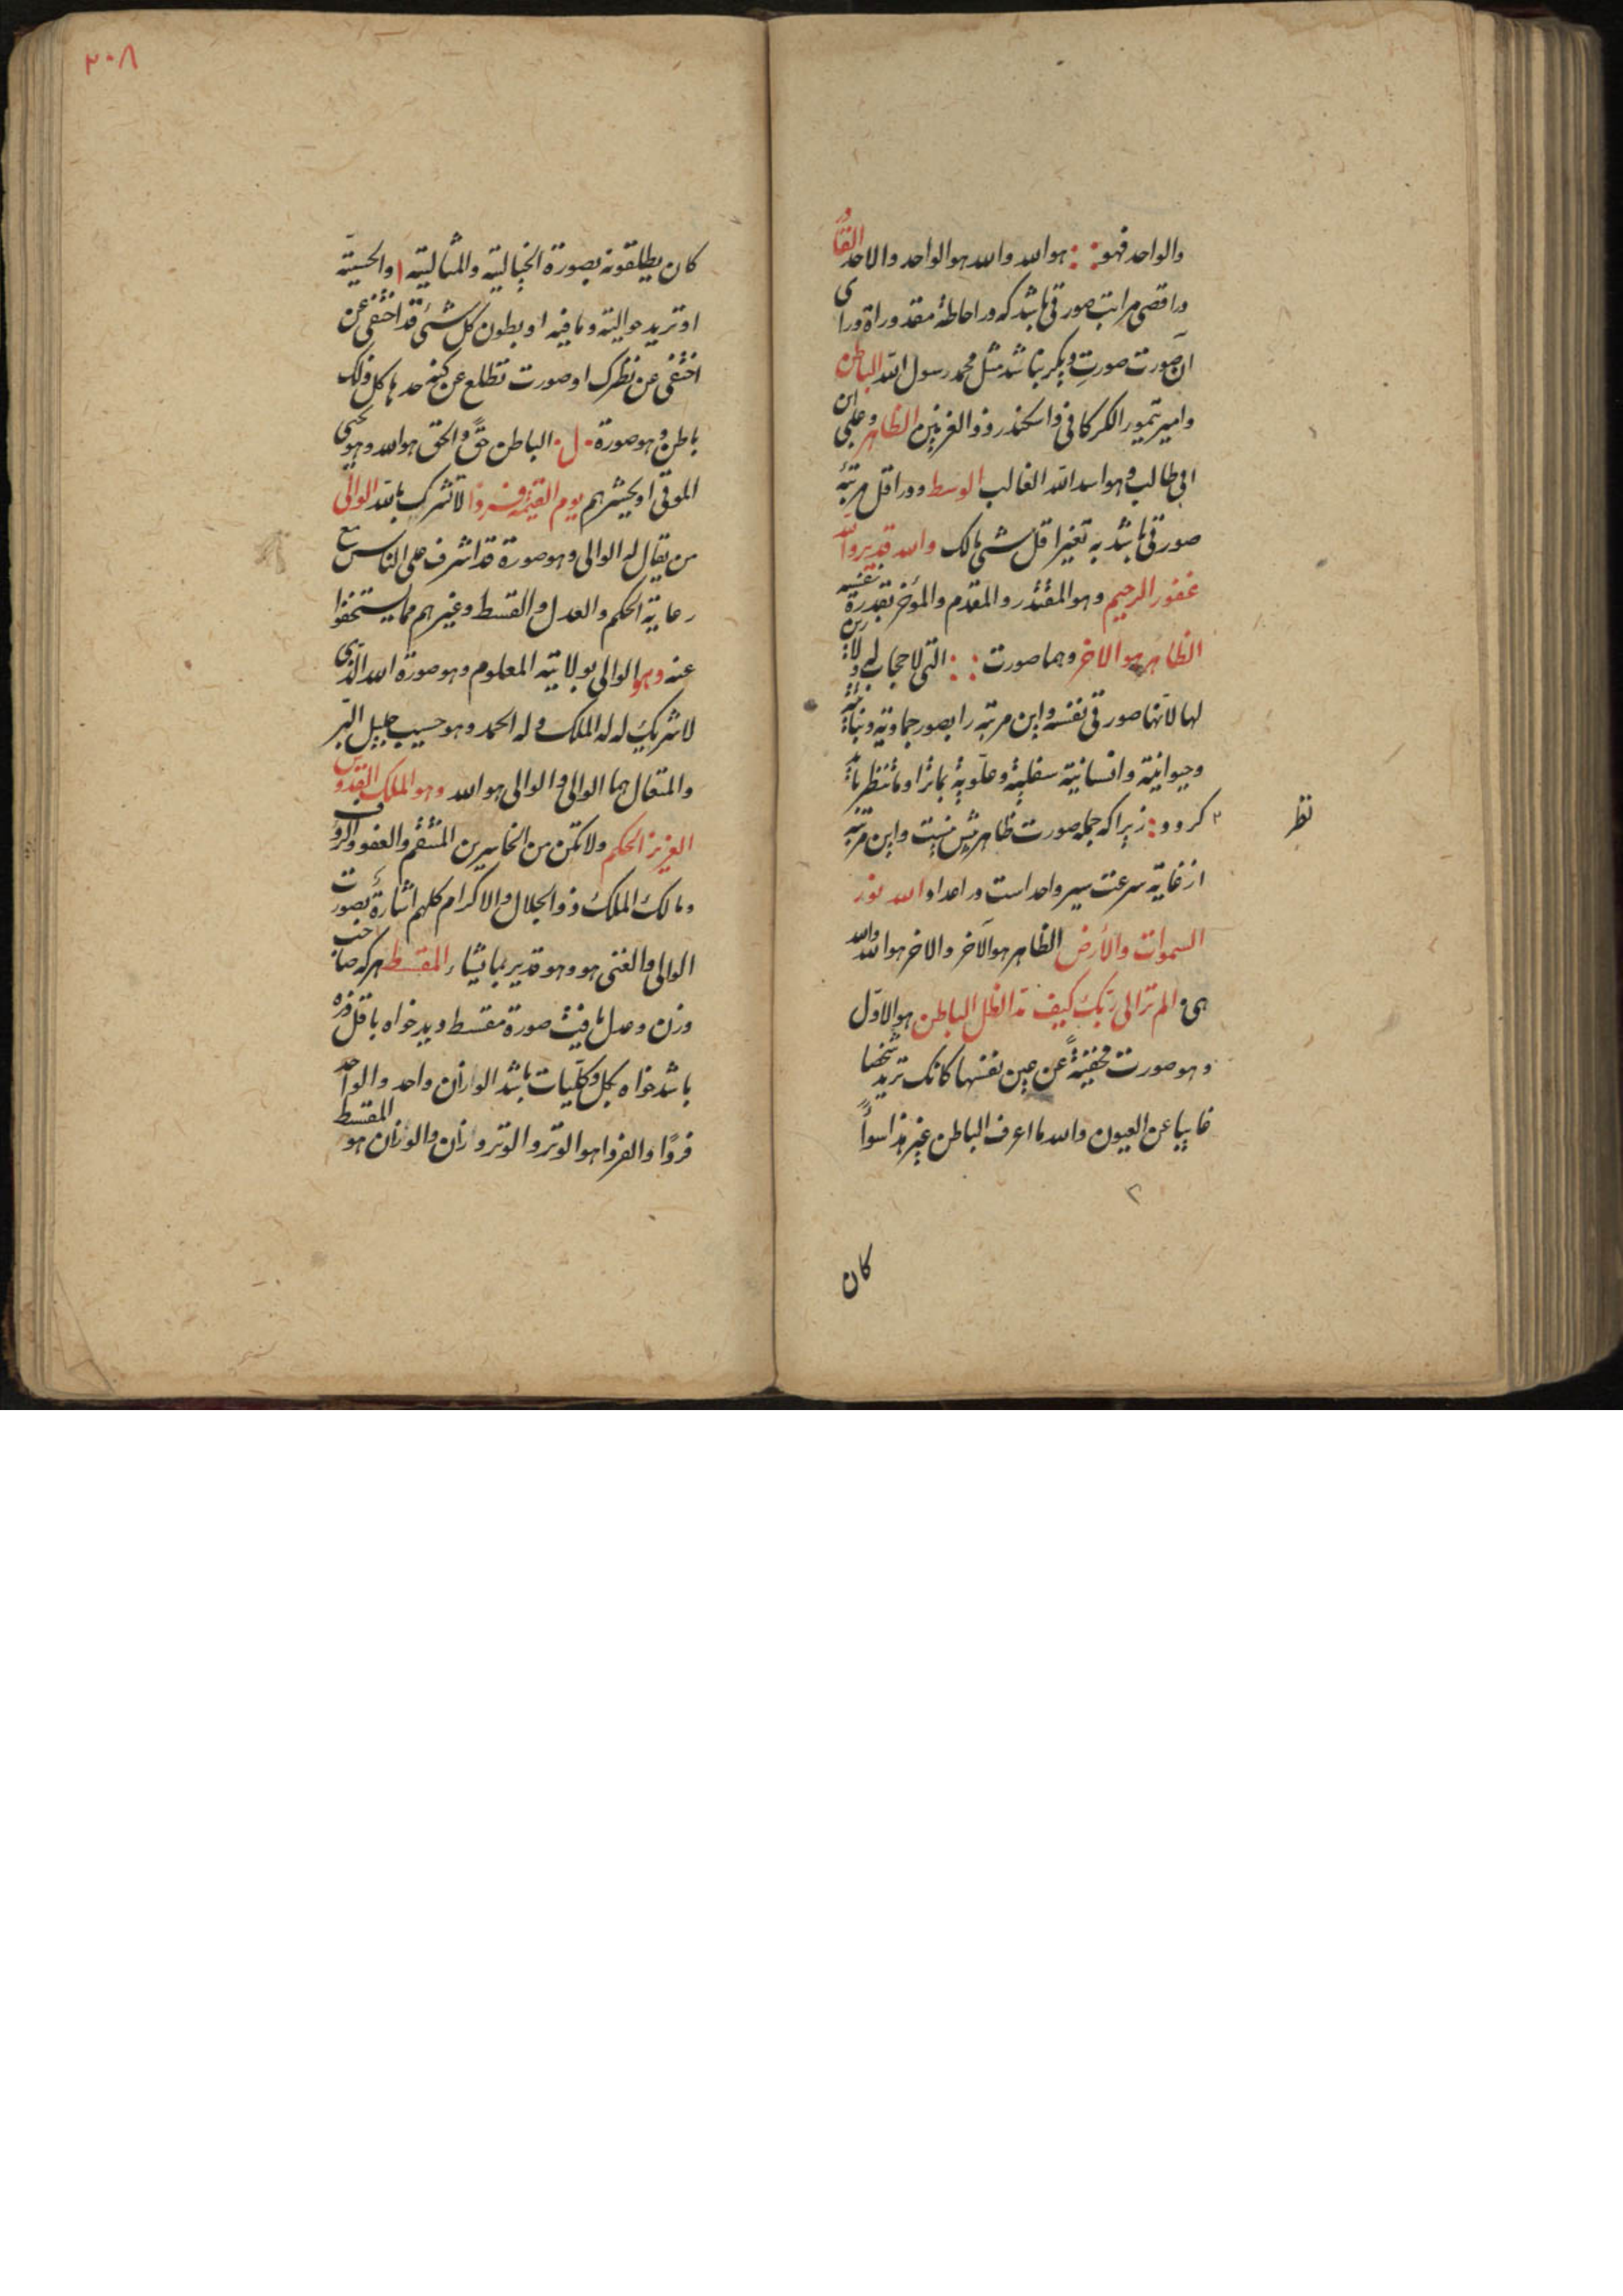 والواحد فهو : : هو الله والله هو الواحد والاحد القادر
در اقصى مراتب صورتى باشد كه در احاطهٔ مقدوراة وراى
آن صورت صورتِ ديكر نباشد مثل محمد رسول الله الباطن
وامير تيمور الكركانى واسكندر ذو القرنين الظاهر وعلى ابن
ابى طالب وهو اسد الله الغالب الوسط ودر اقل مرتبه
صورتى باشد به تغير اقل شئ هالك والله قدير والله
غفور الرحيم وهو المقتدر والمقدم والمؤخر بقدرة نفسه
الظاهر هو الاخر وهما صورت : : التى لا حجاب له ولا
لها لانها صور فى نفسه واين مرتبه را بصور جماديه ونباتية
وحيوانية وانسانية سفلية وعلوية
كردد : زيرا كه جمله صورت ظاهر پيش نيست واين مرتبه
نظر
از غاية سرعت سير واحد است در اعداد الله نور
السموات والأرض الظاهر هو الآخر والاخر هو الله والله
هى الم تر الى ربك كيف مد الظل الباطن هو الاوّل
وهو صورت مخفيةً عن عين نفسها كانك تريد شخصا
غايبا عن العيون والله ما اعرف الباطن غير هذا سواً
كان
٢٠٨
كان يطلقونه بصورة الخيالية والمثالية والحسيّة
او تريد حواليته وما فيه او بطون كل شئ قد اختفى عن
اختفى عن نظرك او صورت تطلع عن كنه حدها كل ذلك
باطن وهو صورة ل الباطن حقّ والحق هو الله وهو يحيى
الموتى او يحشرهم يوم القيمه فردا لا تشرك بالله الوالى
من يقال له الوالى وهو صورة قد اشرف على الناس مع
رعاية الحكم والعدل والقسط وغيرهم مما يستحقوا
عنه وهو الوالى بولايته المعلوم وهو صورة الله الّذى
لا شريك له له الملك وله الحمد وهو حسيب جليل البر
والمتعال هما الوالى والوالى هو الله وهو الملك القدوس
العزيز الحكم ولا تكن من الخاسرين المنتقم والعفو والرؤف
ومالك الملك ذو الجلال والاكرام كلهم اشارةٌ بصورت
الوالى والغنى هو وهو قدير بما يشاء المقسط هركه صاحب
وزن وعدل يافت صورة مقسط ديد خواه باقل ذره
باشد خواه بكل وكليات باشد الوازن واحد والواحد
فردًا والفردا هو الوتر والوتر وازن والوازن هو المقسط